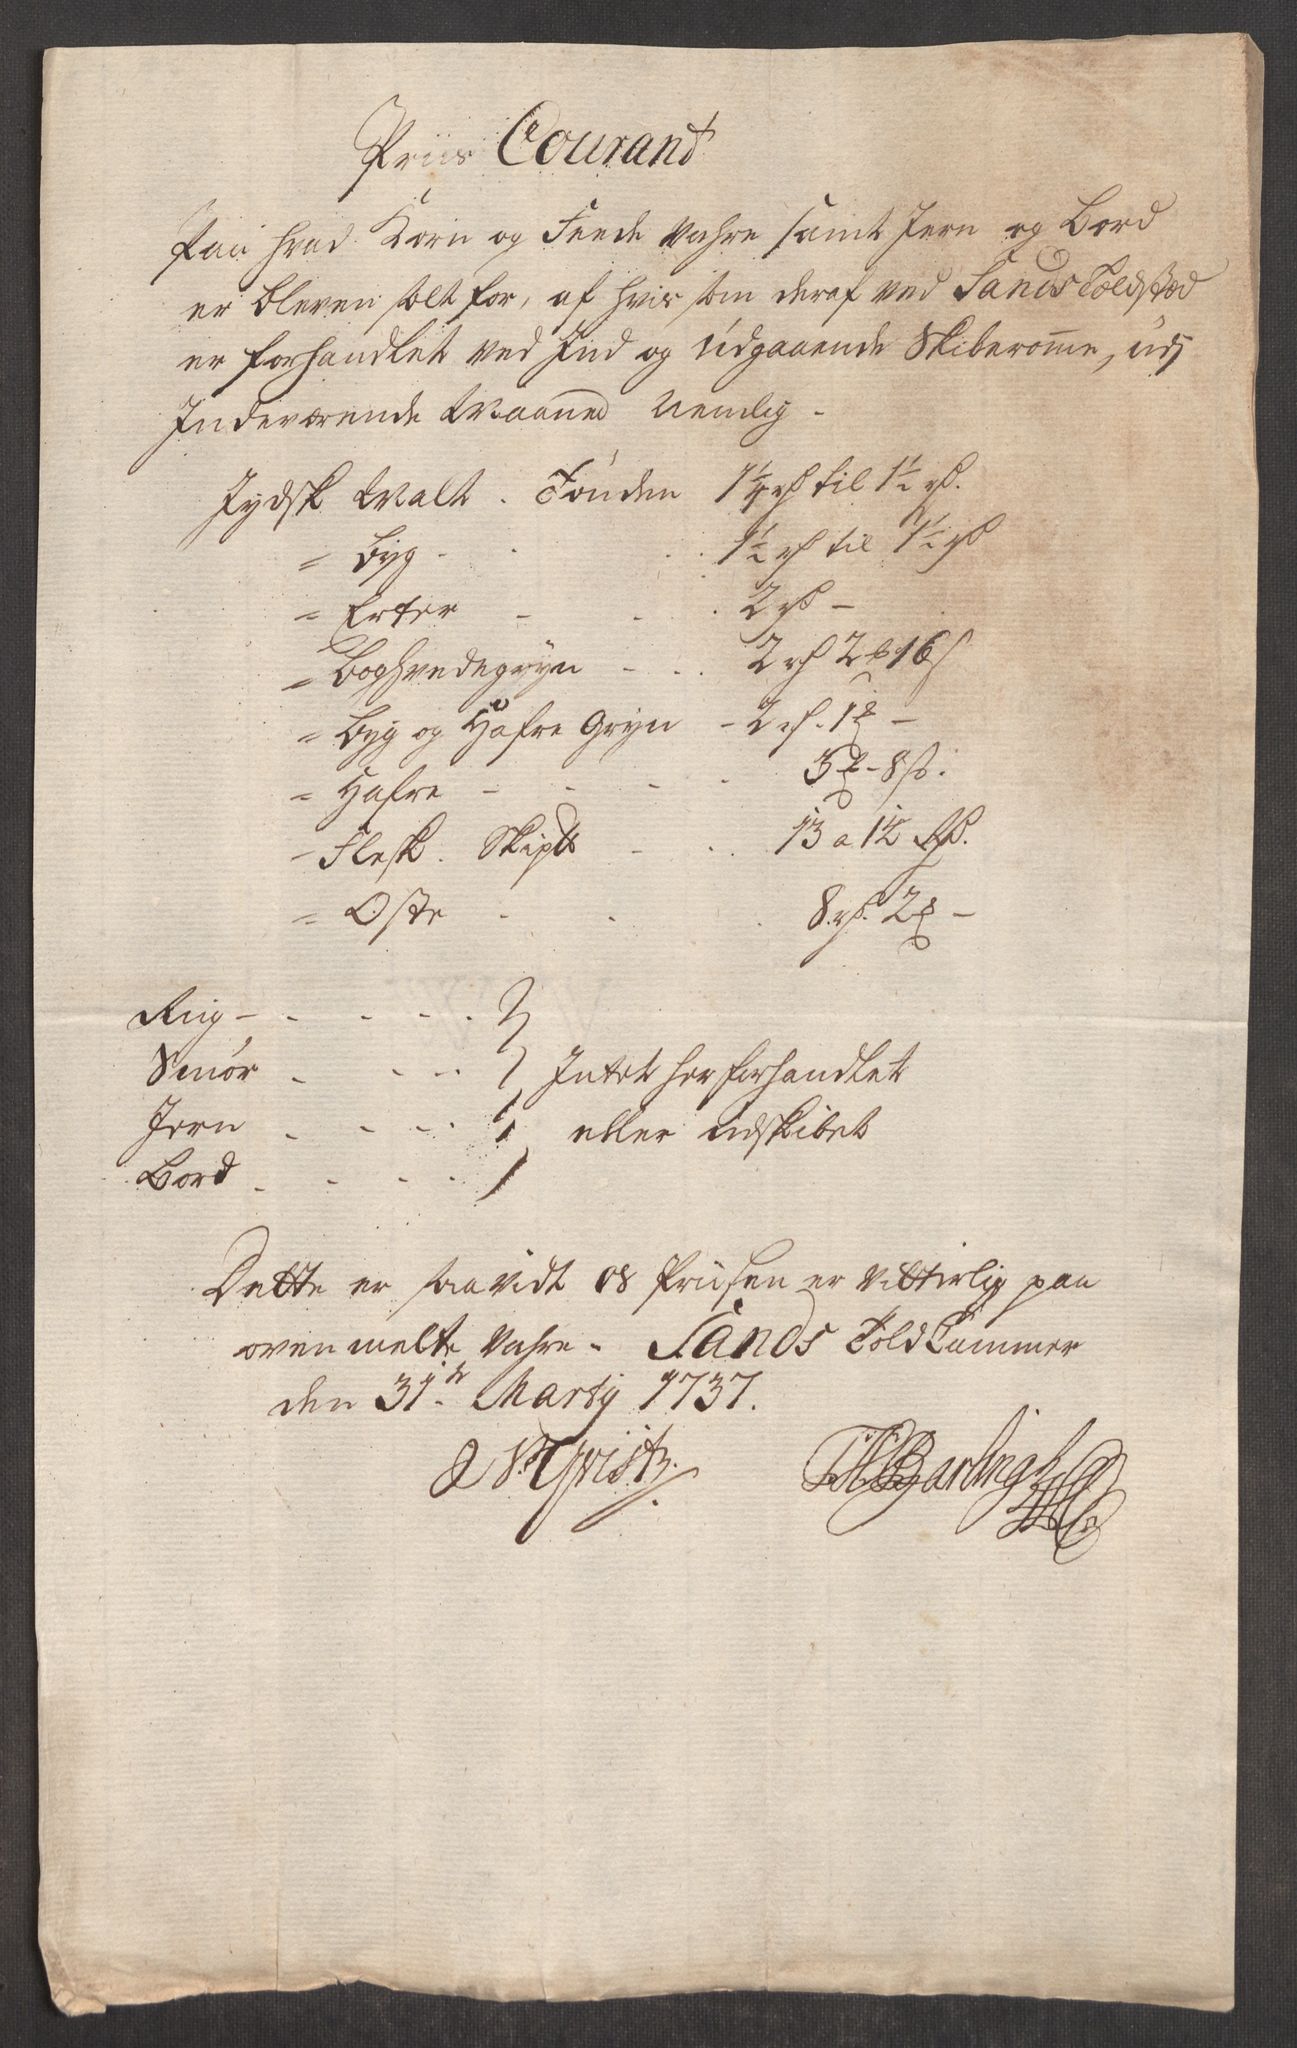 Priis Courant
Paa hvad Korn og Feede Vahre samt Jern og Bord
er bleven solt for, af hvis som deraf ved Sands Toldsted
er forhandlet ved Ind og Udgaaende Skiberomme, udj
Indeværende Maaned Nemlig -
Jydsk Malt . Tønden 1¼ rd til 1½ rd.
" Byg - - - 1½ rd til 1½ rd
" Erter - - - 2 rd -
" Boghvedegryn - - 2 rd 2 ℔ 16 s
" Byg og Hafre Gryn - 2 rd. 1 ℔ -
" Hafre - - - - 3 ℔ - 8 s.
- Flesk . Skip℔ - - 13 a 14 Rd.
" Oste - - - 8. rd. 2 ℔ -
Rug - - - - -
Smør - - - - Intet her forhandlet
Jern - - - - eller udskibet
Bord - - - -
Dette er saavidt os Priisen er Vitterlig paa
oven melte Vahre - Sands Told Cammer
den 31te Martij 1737.